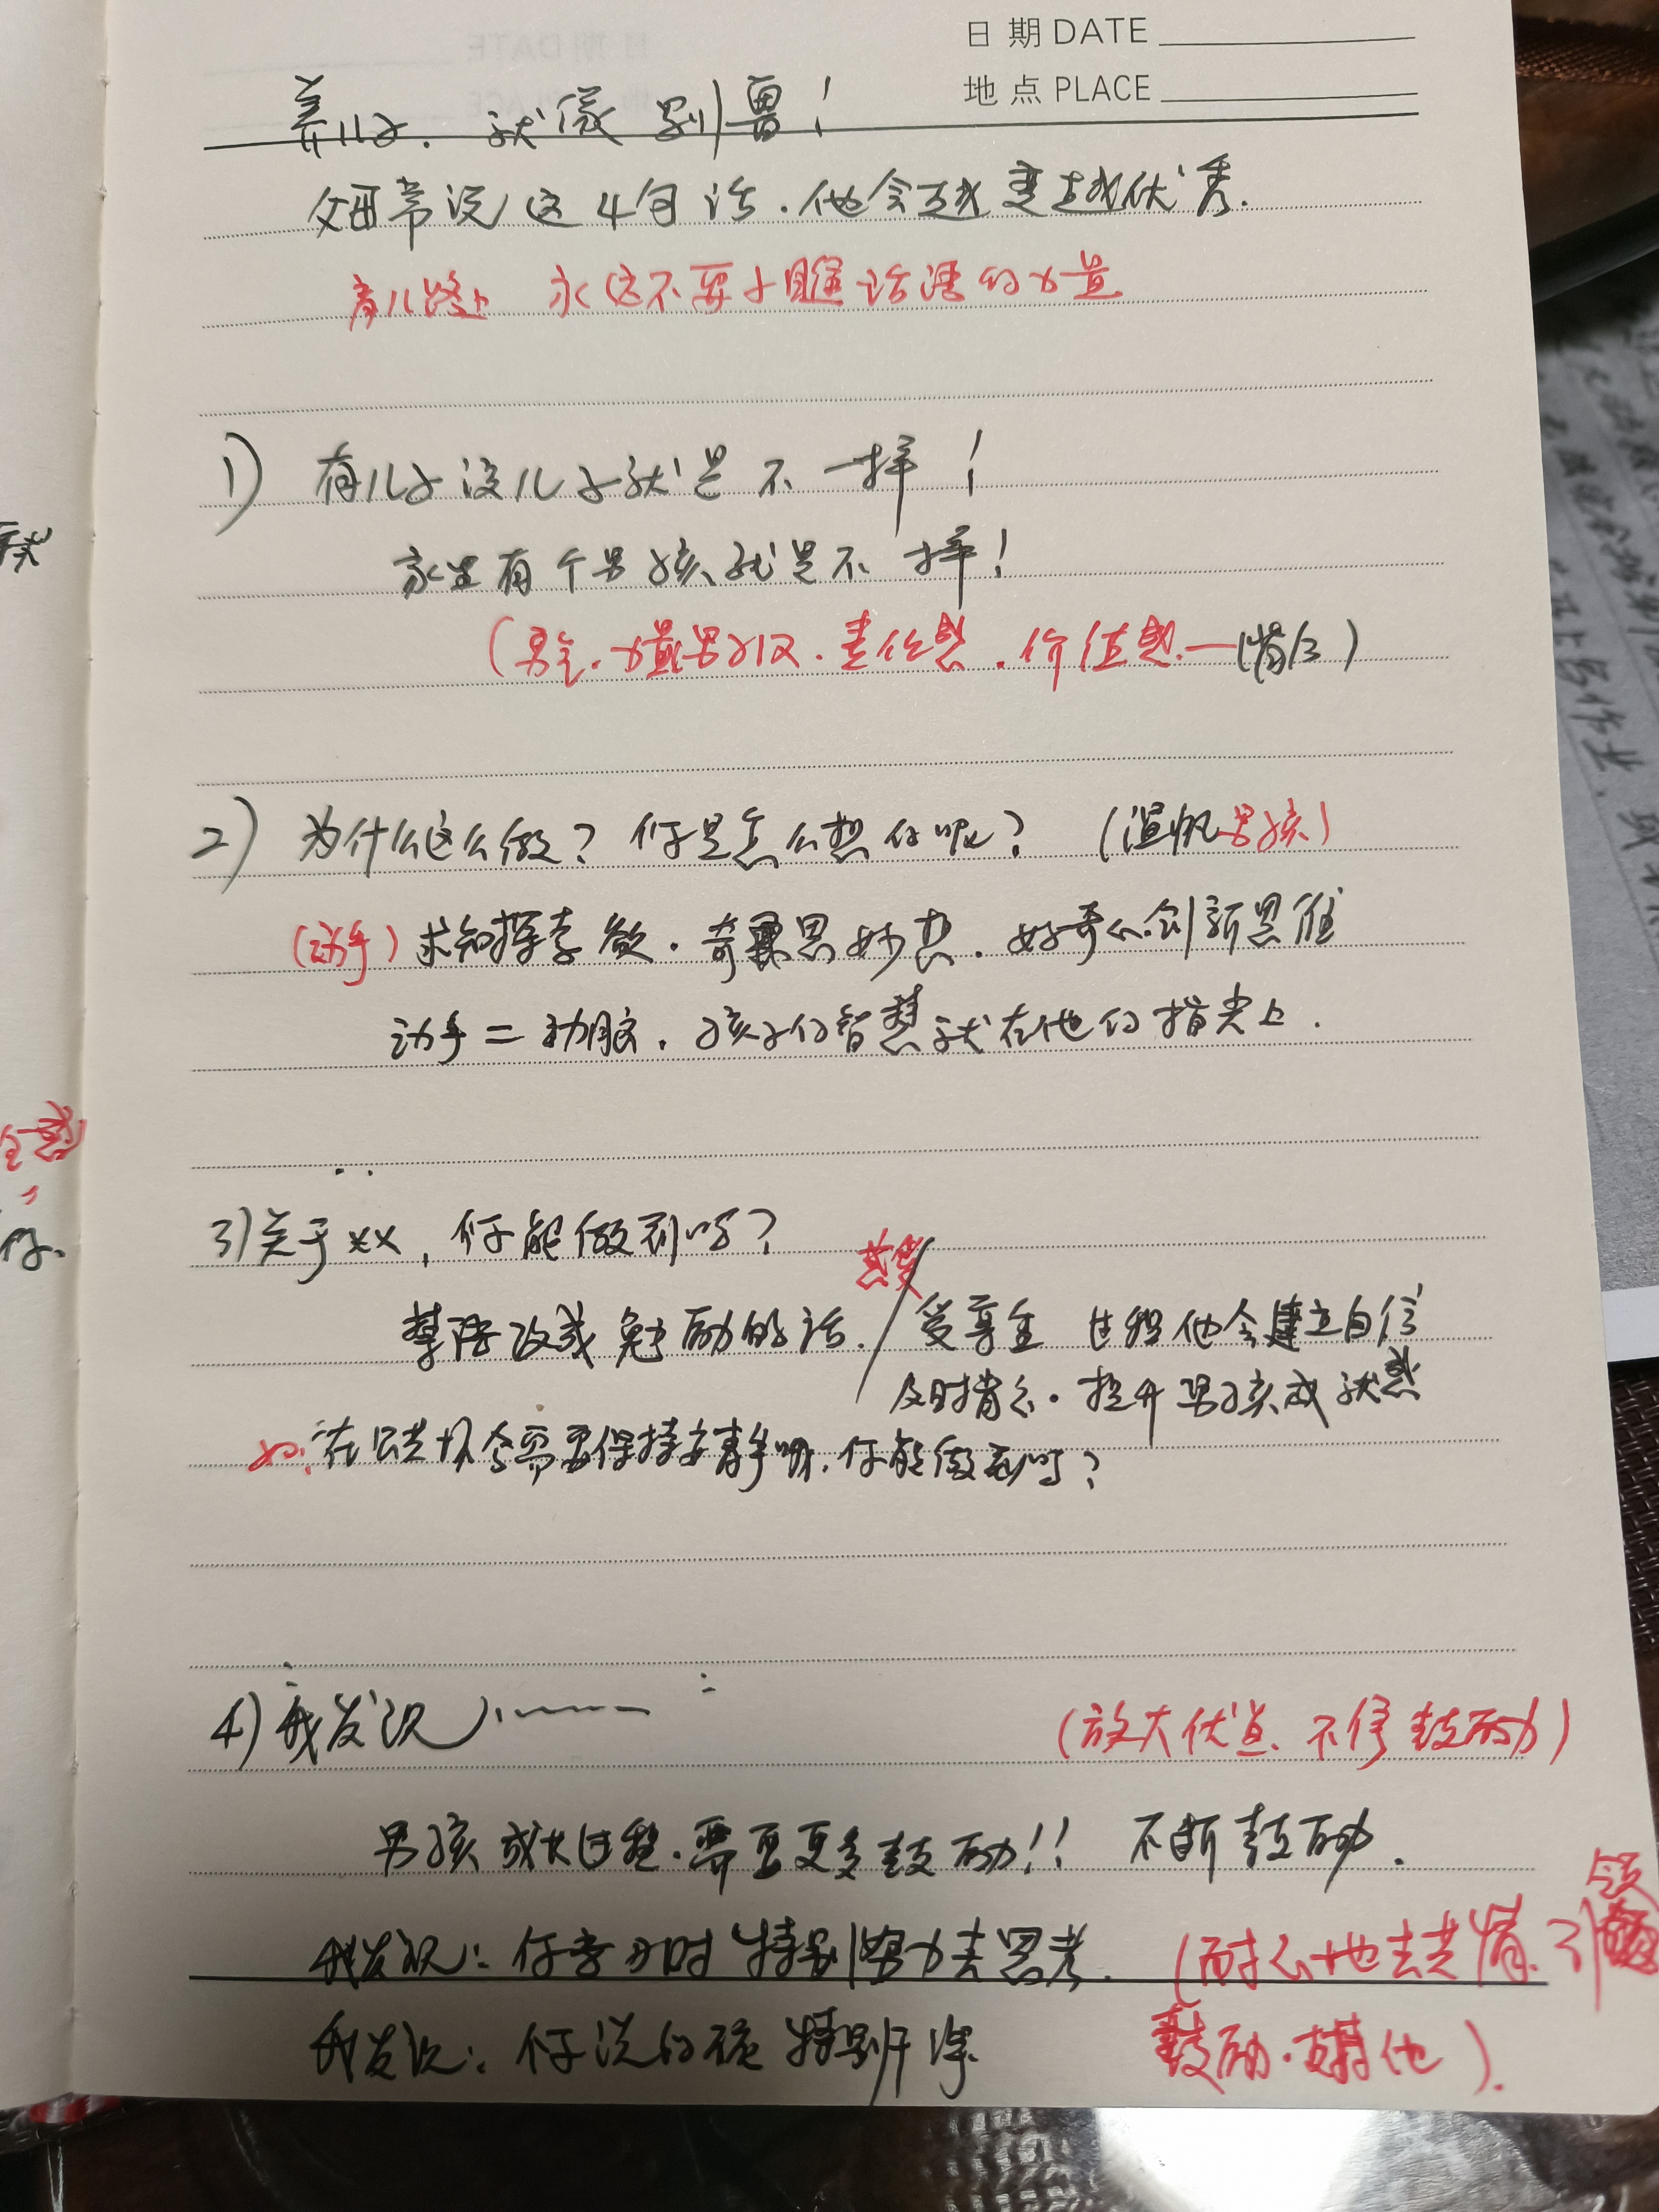 日期 DATE
地点 PLACE
养儿子.就像 别 !
父母常说这4句话.他会越变越优秀.
育儿路上 永远不要小瞧话语的力量
1) 有儿子没儿子就是不一样!
家里有个男孩就是不一样!
(男子力量男子汉.责任感.价值感.—(情后)
2) 为什么这么做?你是怎么想的呢? (男孩)
(动手)求知探索欲.奇思妙想.好奇心创新思维
动手=动脑.孩子的智慧就在他的指尖上.
3)关于xx,你能做到吗?
共赏
禁语改成勉励的话. 受尊重 过程他会建立自信
及时肯定.提升男孩成就感
如:在公共场合需要保持安静哦.你能做到吗?
4)我发现……
(放大优点、不停鼓励)
男孩成长过程.需要更多鼓励!! 不断鼓励.
我发现:你学习时特别努力去思考. (耐心地去共情.引领
我发现:你说的 特别 鼓励.支持他).